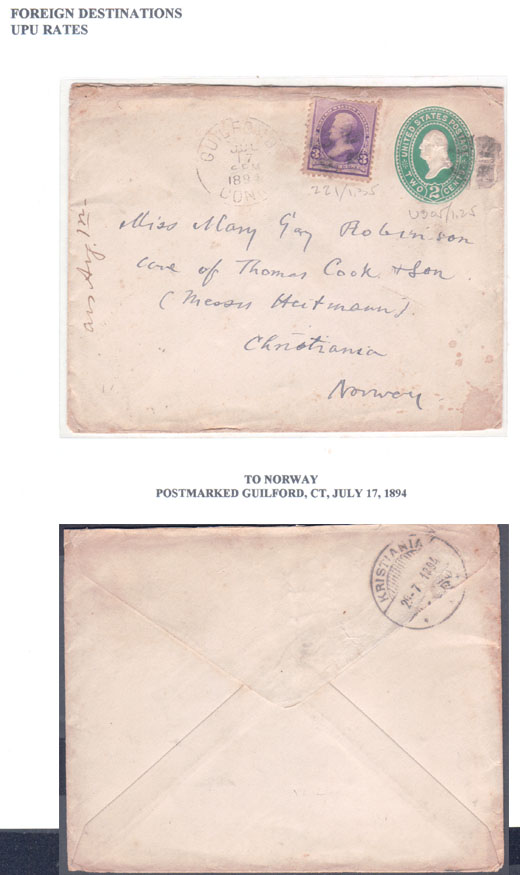 FOREIGN DESTINATIONS
UPU RATES
GUILFORD
JUL
17
2 PM
189
CONN
3
3
UNITED STATES POSTAGE
TWO
2
CENTS
221/1.25
U305/1.25
Miss Mary Gay Robinson
care of Thomas Cook & Son
(Messrs Heitmann).
Christiania
Norway
ans Aug. 1st
TO NORWAY
POSTMARKED GUILFORD, CT, JULY 17, 1894
KRISTIANIA
29-7 189